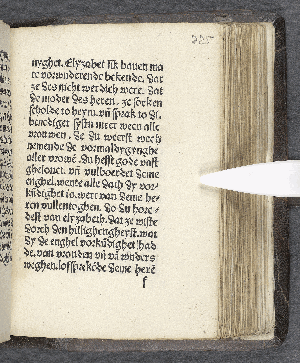 225
nyghet. Elyzabet sik bauen ma
te vorwunderende bekende. dat
ze des nicht werdich were. dat
de moder des heren. ze soken
scholde to heym. vñ sprak to di.
benediget systu meer wen alle
vrouwen. de du werst
nemende de vormaldygynghe
aller vrowē. du hefst gode vast
ghelouet. vñ vulbordet deme
enghel. wente alle dach dy vor
kūdighet is. wert van deme he
ren vullentoghen. do du hore
dest van elyzabeth. dat ze wiste
dorch den hillighengheyst. wat
dy de enghel vorkūdighet had
de. van vrouden vñ vā wūders
weghen. loffprekēde deme herē
f